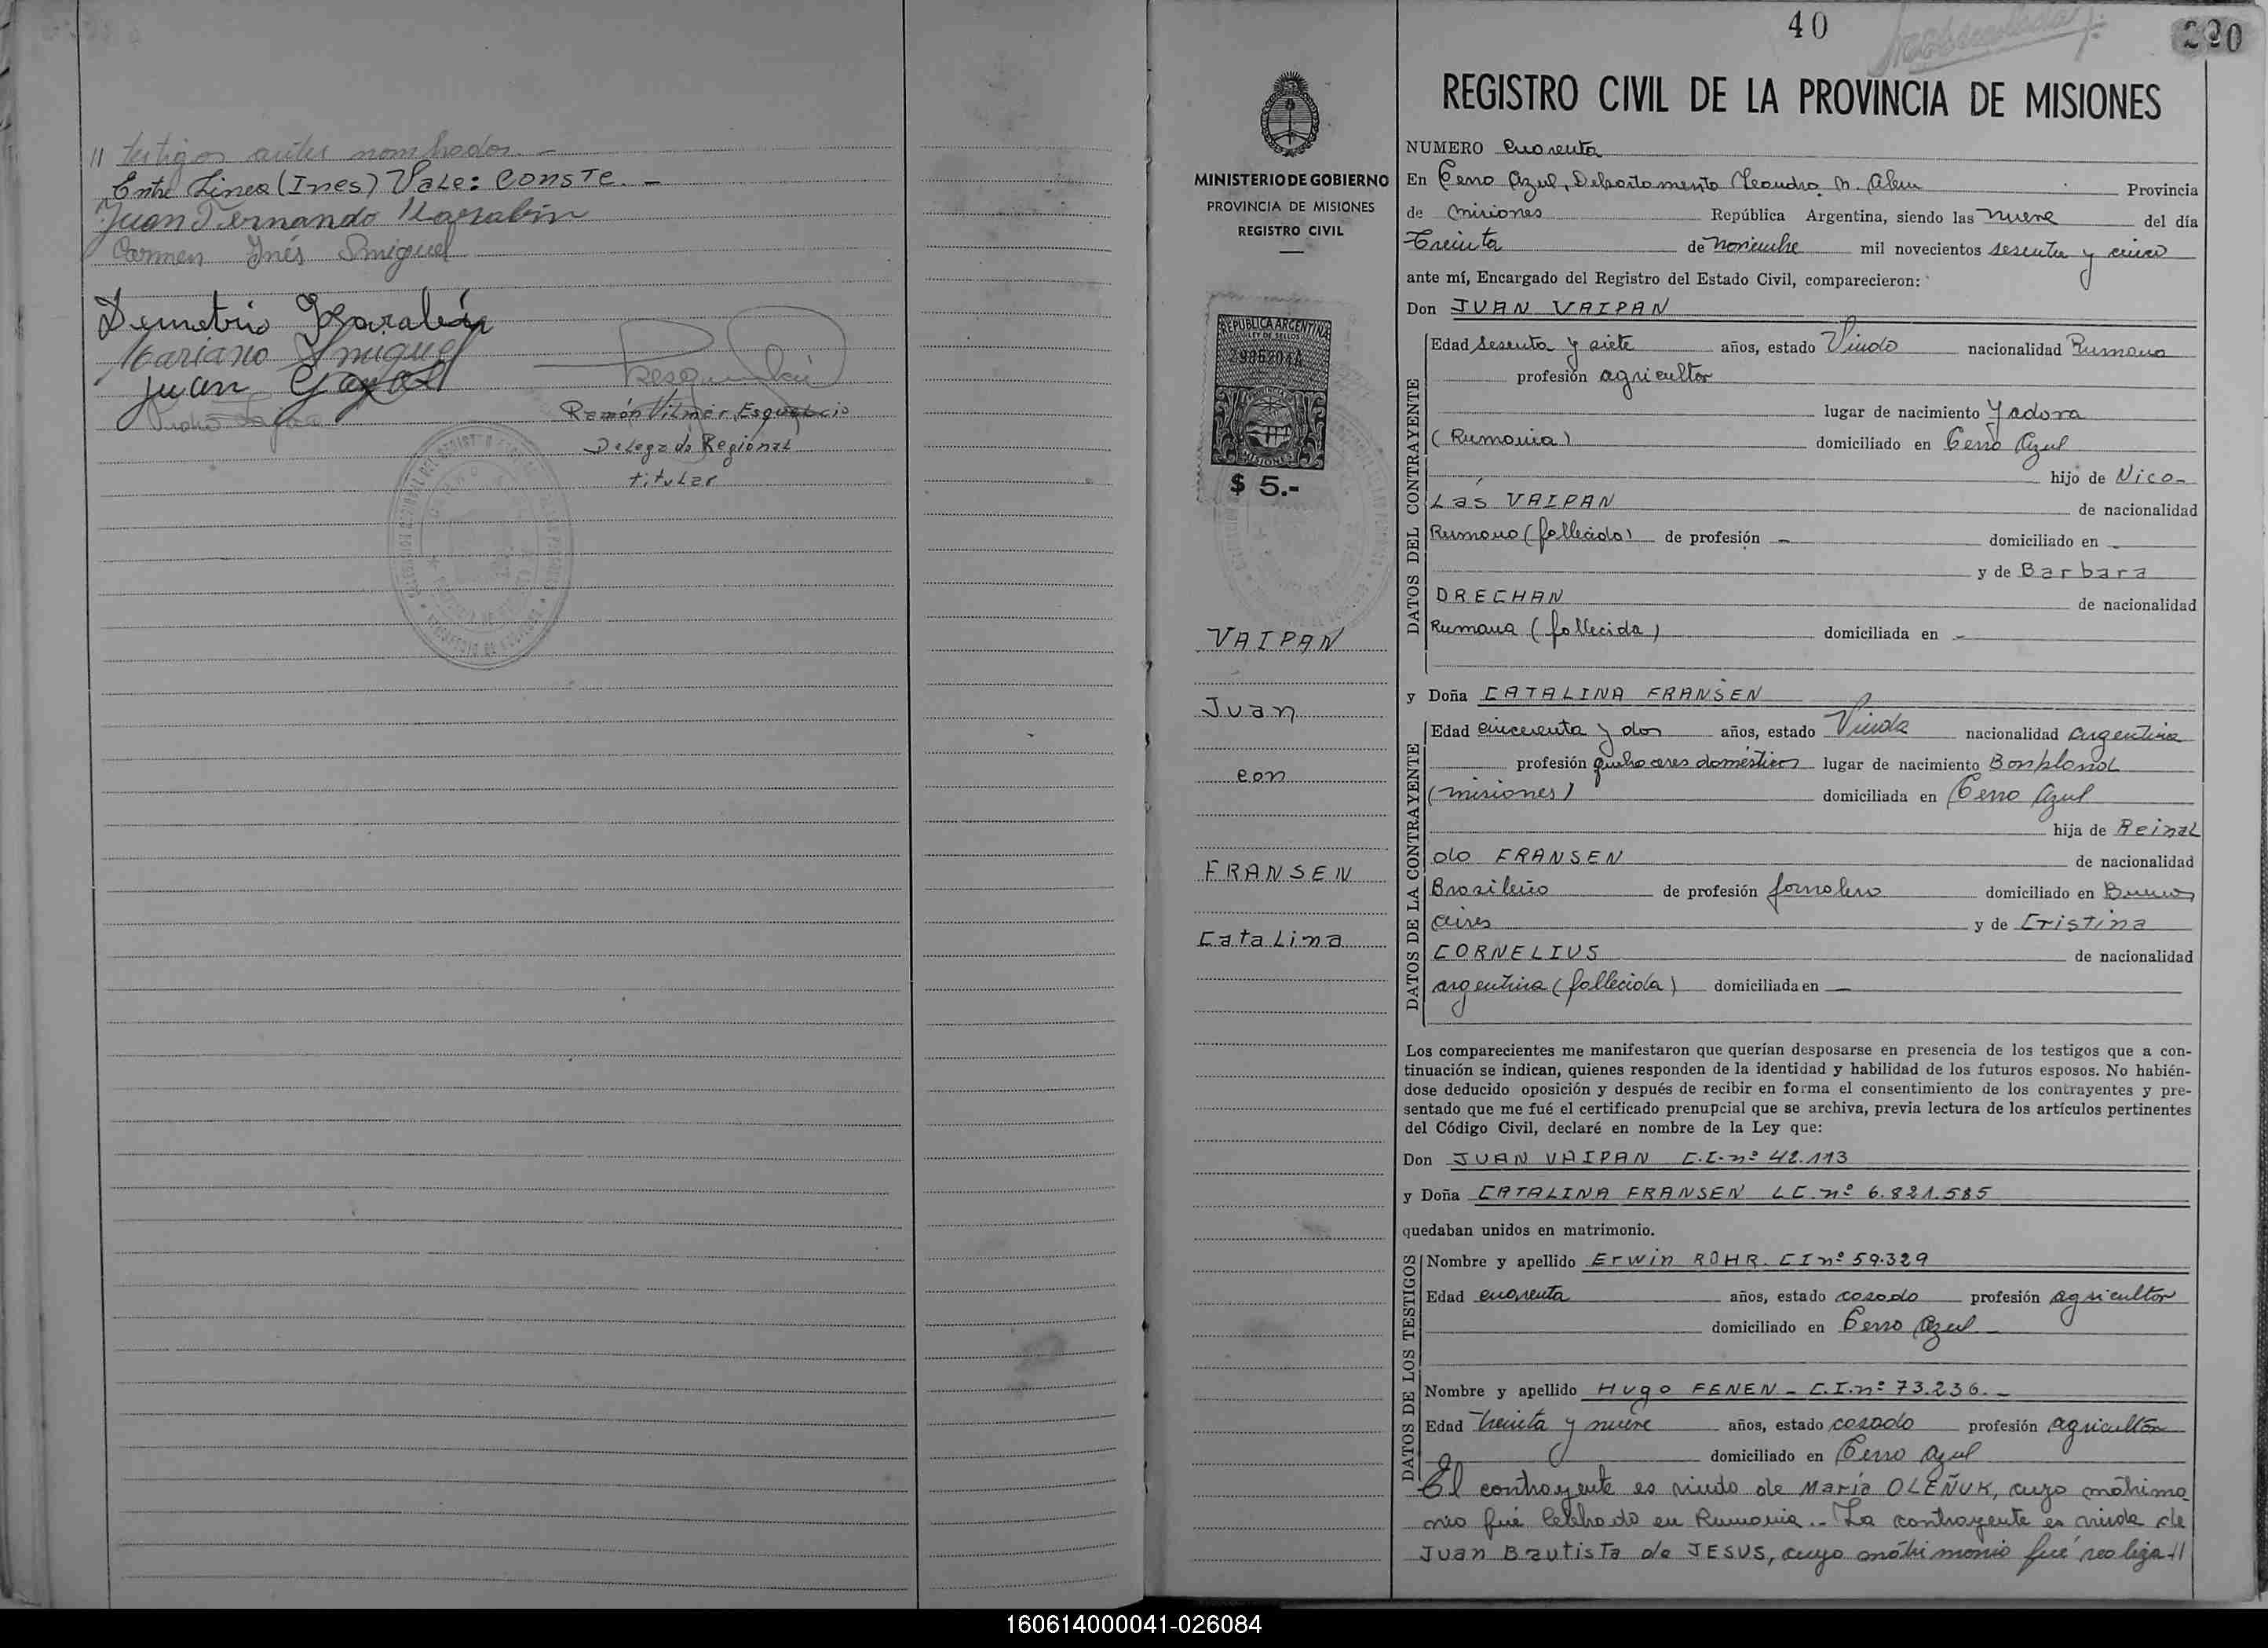 // testigos antes nombrados.-
Entre Linea (Ines) Vale: CONSTE. -
Juan Fernando Karabin
Carmen Inés Smiguel
Demetrio Karabin
Mariano Smiguel
Juan
Pedro
Ramón Vilmar Esquelcio
Delegado Regional
titular
40
220
REGISTRO CIVIL DE LA PROVINCIA DE MISIONES
MINISTERIO DE GOBIERNO
PROVINCIA DE MISIONES
REGISTRO CIVIL
REPUBLICA ARGENTINA
LEY DE SELLOS
MISIONES
$ 5.-
VAIPAN
Juan
con
FRANSEN
Catalina
NUMERO Cuarenta
En Cerro Azul, Departamento Leandro N. Alem Provincia
de Misiones República Argentina, siendo las nueve del día
Treinta de noviembre mil novecientos sesenta y cinco
ante mí, Encargado del Registro del Estado Civil, comparecieron:
Don JUAN VAIPAN
DATOS DEL CONTRAYENTE
Edad sesenta y siete años, estado Viudo nacionalidad Rumana
profesión agricultor
lugar de nacimiento Yadova
(Rumania) domiciliado en Cerro Azul
hijo de Nico-
Lás VAIPAN de nacionalidad
Rumano (fallecido) de profesión - domiciliado en -
y de Barbara
DRECHAN de nacionalidad
Rumana (fallecida) domiciliada en -
y Doña CATALINA FRANSEN
DATOS DE LA CONTRAYENTE
Edad cincuenta y dos años, estado Viuda nacionalidad argentina
profesión quehaceres domésticos lugar de nacimiento Bonpland
(Misiones) domiciliada en Cerro Azul
hija de Reinal
do FRANSEN de nacionalidad
Brasileño de profesión jornalero domiciliado en Buenos
Aires y de Cristina
CORNELIUS de nacionalidad
argentina (fallecida) domiciliada en -
Los comparecientes me manifestaron que querían desposarse en presencia de los testigos que a con-
tinuación se indican, quienes responden de la identidad y habilidad de los futuros esposos. No habién-
dose deducido oposición y después de recibir en forma el consentimiento de los contrayentes y pre-
sentado que me fué el certificado prenupcial que se archiva, previa lectura de los artículos pertinentes
del Código Civil, declaré en nombre de la Ley que:
Don JUAN VAIPAN C.I. nº 42.113
y Doña CATALINA FRANSEN L.C. nº 6.821.585
quedaban unidos en matrimonio.
DATOS DE LOS TESTIGOS
Nombre y apellido Erwin ROHR. C I nº 59.329
Edad cuarenta años, estado casado profesión agricultor
domiciliado en Cerro Azul -
Nombre y apellido Hugo FENEN - C.I. nº 73.236. -
Edad treinta y nueve años, estado casado profesión agricultor
domiciliado en Cerro Azul
El contrayente es viudo de María OLEÑUK, cuyo matrimo
nio fué celebrado en Rumania.- La contrayente es viuda de
Juan Bautista de JESUS, cuyo matrimonio fué realiza-//
160614000041-026084